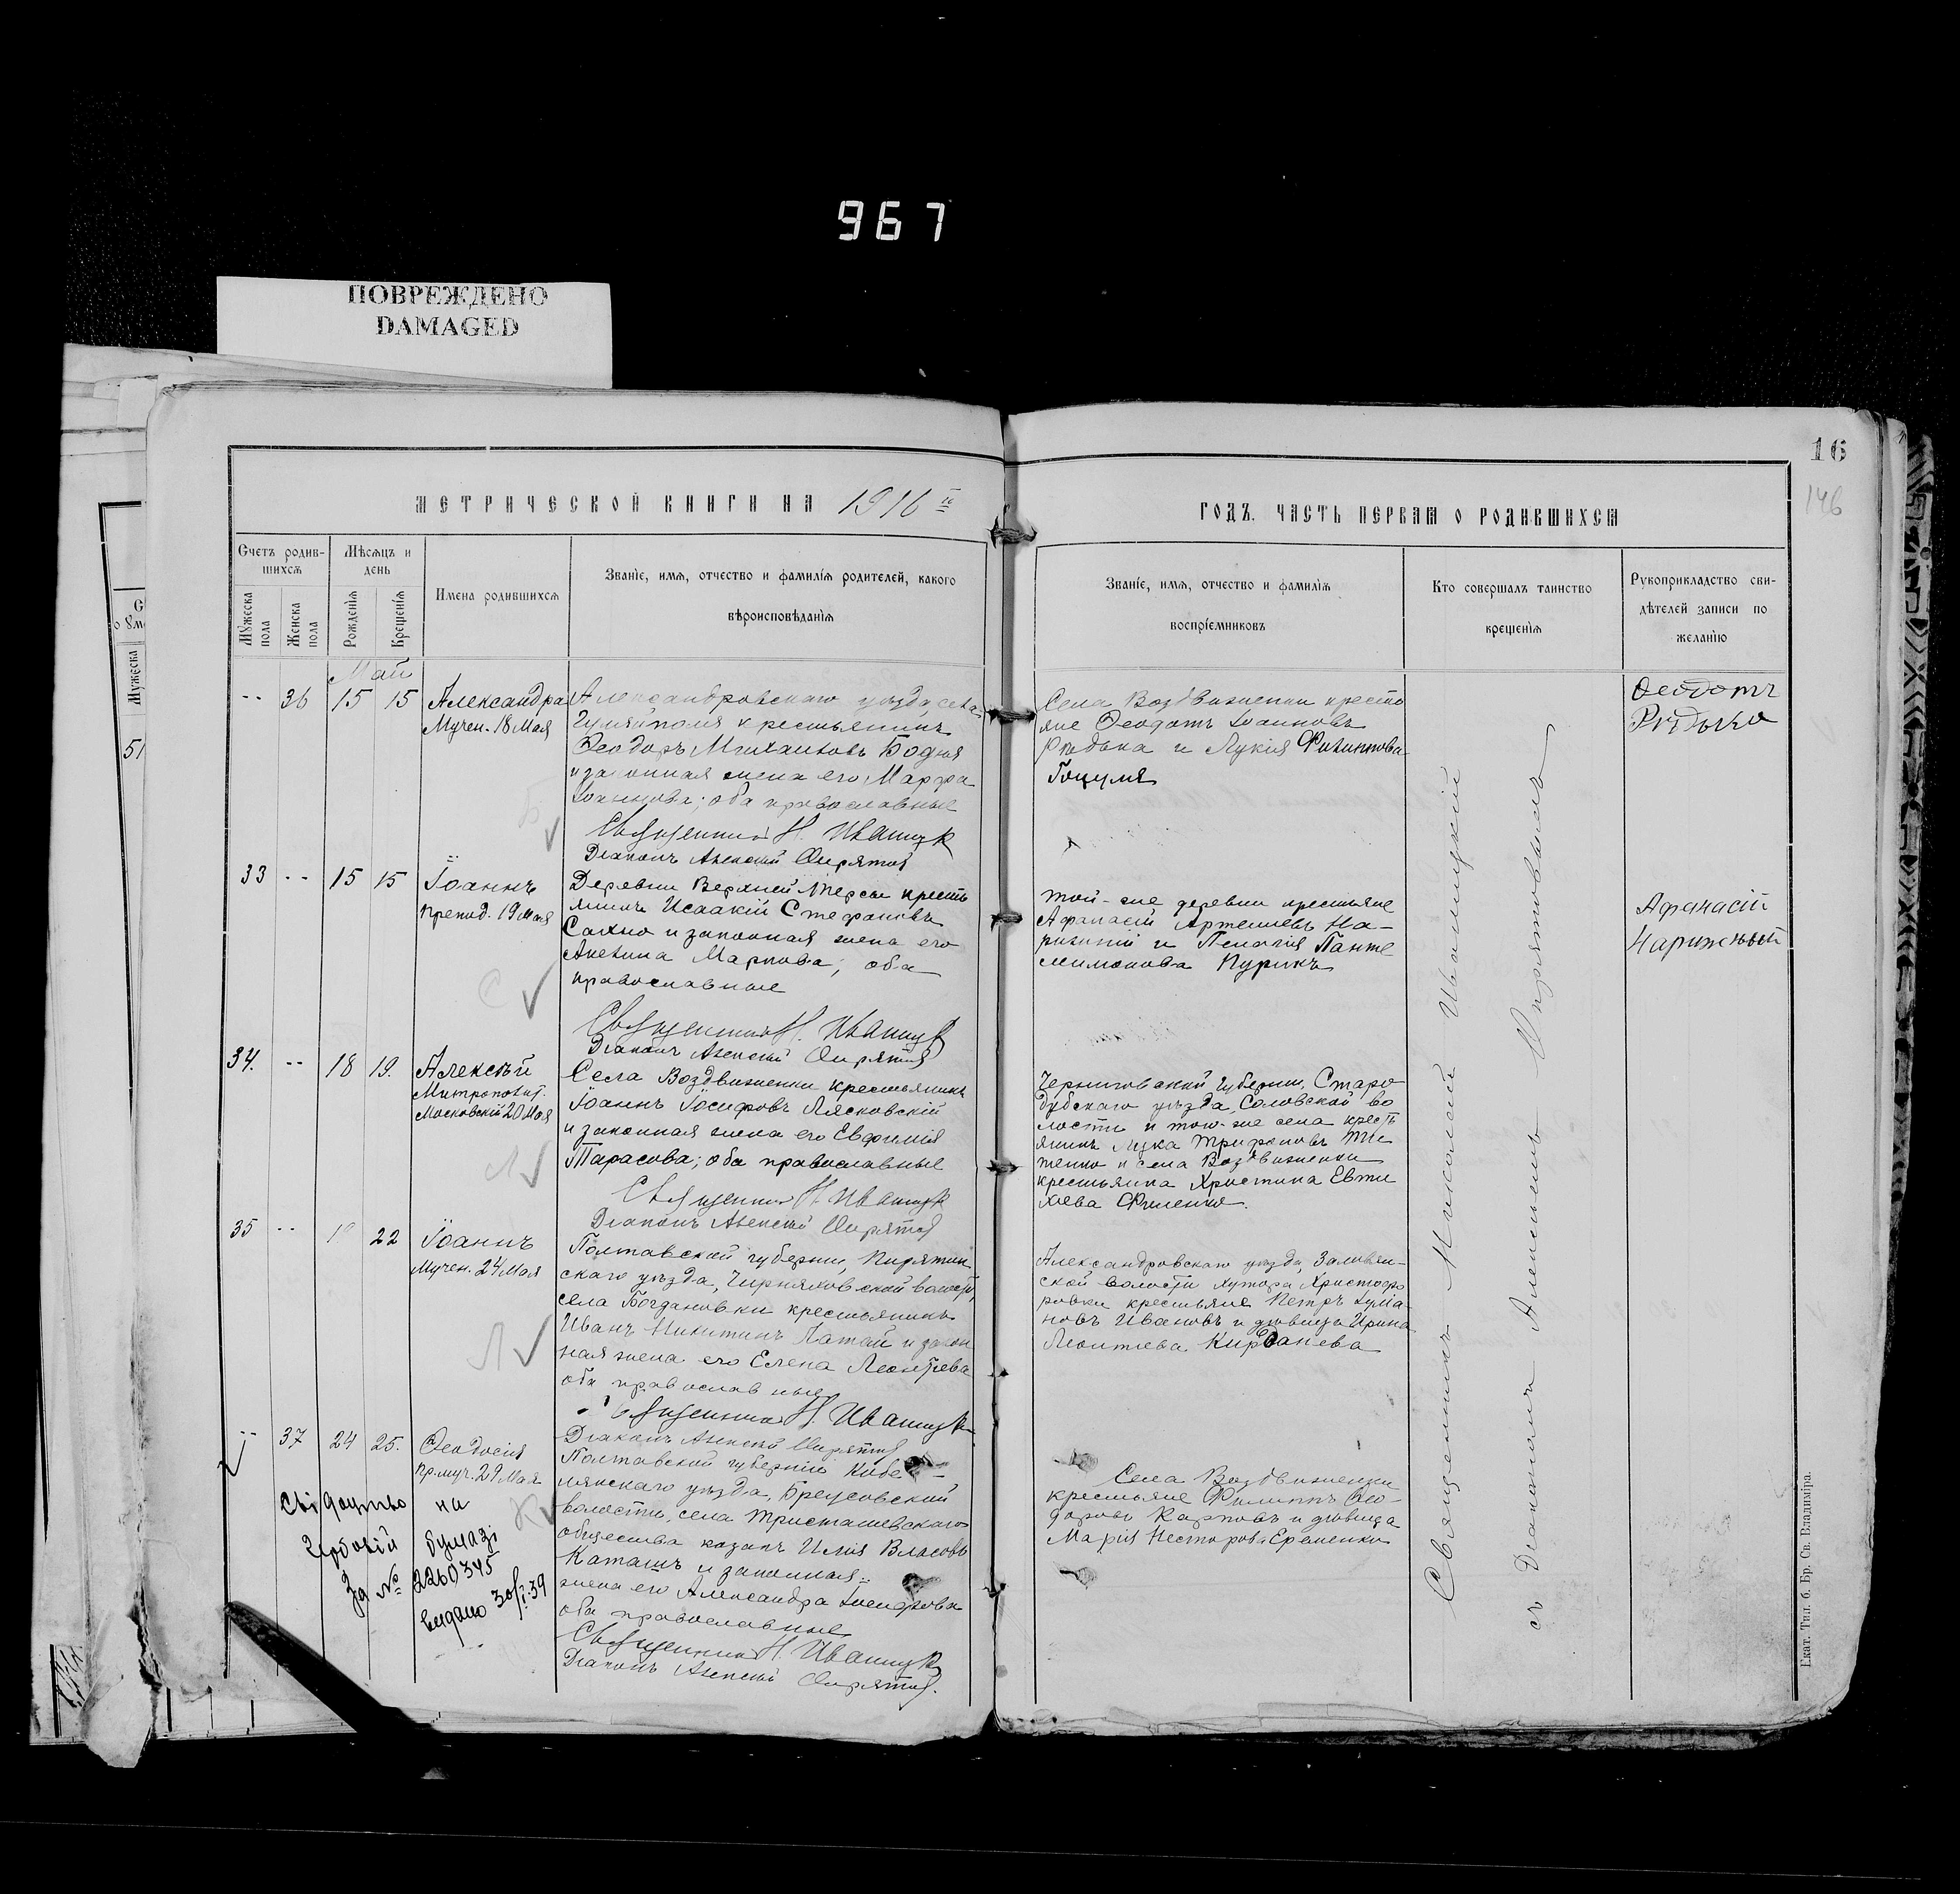 967
ПОВРЕЖДЕНО
DAMAGED
16
146
МЕТРИЧЕСКОЙ КНИГИ НА 1916 й
ГОДЪ. ЧАСТЬ ПЕРВАЯ О РОДИВШИХСЯ
Счетъ родив-
шихся
Мужеска пола
Женска пола
Мѣсяцъ и
день
Рожденія
Крещенія
Имена родившихся
Званіе, имя, отчество и фамилія родителей, какого
вѣроисповѣданія
Званіе, имя, отчество и фамилія
воспріемниковъ
Кто совершалъ таинство
крещенія
Рукоприкладство сви-
дѣтелей записи по
желанію
Май
-- 36 15 15 Александра
Мучен. 18 Мая
Александровскаго уѣзда села
Гуляйполя крестьянинъ
Ѳеодоръ Михаиловъ Бодня
и законная жена его Марфа
Іоаннова; оба православные
Священникъ Н. Иваницк
Діаконъ Алексій Опрятов
Села Воздвиженки кресть
яне Ѳеодотъ Іоанновъ
Рѣдька и Лукія Филиппова
Гоцуля
Ѳеодотъ
Рѣдька
33 -- 15 15 Іоаннъ
Препод. 19 Мая
Деревни Верхней-Терсы кресть
янинъ Исаакій Стефановъ
Сахно и законная жена его
Акелина Маркова; оба
православные
Священникъ Н. Иваницк
Діаконъ Алексій Опрятов
Той-же деревни крестьяне
Афанасій Артемиевъ На-
рижний и Пелагія Панте
леимонова Курикъ
Афанасій
Нарижный
34. -- 18 19. Алексѣй
Митрополит.
Московскій 20 Мая
Села Воздвиженки крестьянинъ
Іоаннъ Іосифовъ Лясковскій
и законная жена его Евфимія
Тарасова; оба православные
Священникъ Н. Иваницк
Діаконъ Алексій Опрятов
Черниговской губерніи, Старо
дубскаго уѣзда, Соловской во
лости и того-же села кресть
янинъ Лука Трифоновъ
и села Воздвиженки
крестьянка Христина Евти
хіева
35 -- 22 Іоаннъ
Мучен. 24 Мая
Полтавской губерніи, Пирятин
скаго уѣзда, волости,
села Богдановки крестьянинъ
Иванъ Никитинъ Латай и закон
ная жена его Елена Леонтіева
оба православные
Священникъ Н. Иваницк
Діаконъ Алексій Опрятов
Александровскаго уѣзда,
ской волости хутора Христофо
ровки крестьяне Петръ
новъ Ивановъ и дѣвица Ирина
Леонтіева Кирданева
-- 37 24 25. Ѳеодосія
Пр.муч. 29 Мая
Полтавской губерніи Кобе-
лякскаго уѣзда, Бреусовской
волости, села
общества козакъ Илія Власовъ
Каташъ и законная
жена его Александра Іосифова
оба православные
Священникъ Н. Иваницк
Діаконъ Алексій Опрятов.
Села Воздвиженки
крестьяне Филиппъ Ѳео-
доровъ Карповъ и дѣвица
Марія Несторова Еременко
на
гербовій бумазі
За № 2260345
видано 30/I-39
Священникъ Николай Иваницкій
съ Діакономъ Алексѣемъ Опрятовымъ
Екат. Тип. б. Бр. Св. Владиміра.